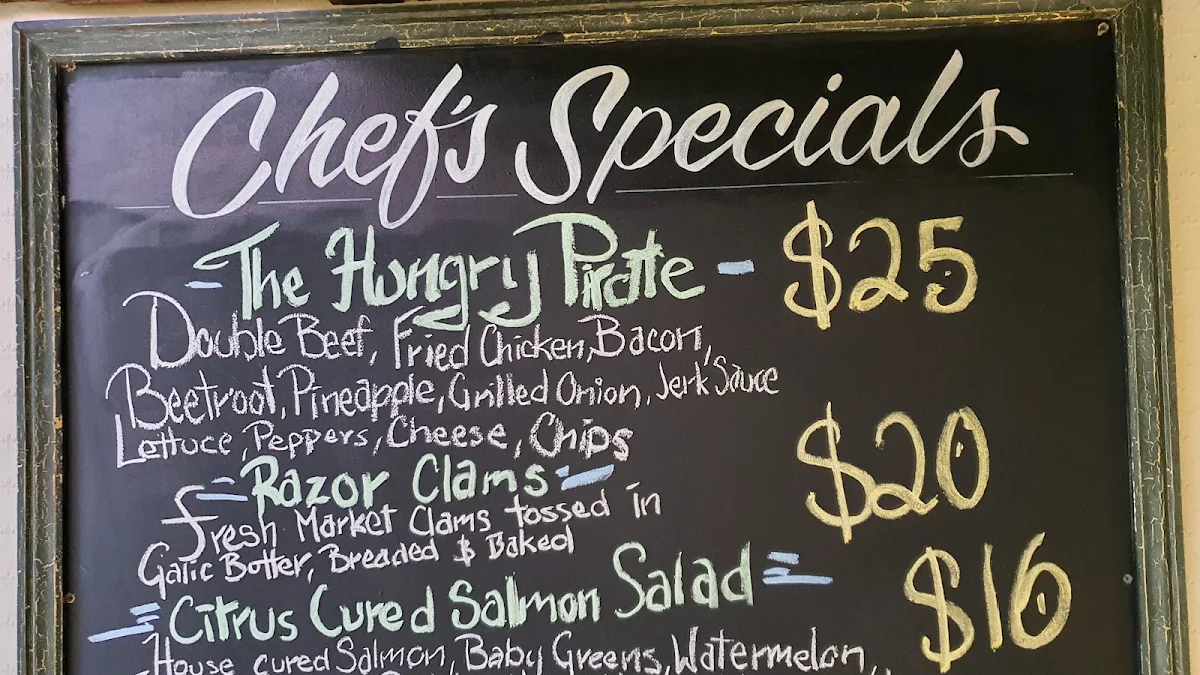 Chef's Specials
The Hungry Pirate - $25
Double Beef, Fried Chicken, Bacon,
Beetroot, Pineapple, Grilled Onion, Jerk Sauce
Lettuce, Peppers, Cheese, Chips
Razor Clams $20
Fresh Market Clams tossed in
Galic Botter, Breaded $ Baked
Citrus Cured Salmon Salad $16
House cured Salmon, Baby Greens, Watermelon,